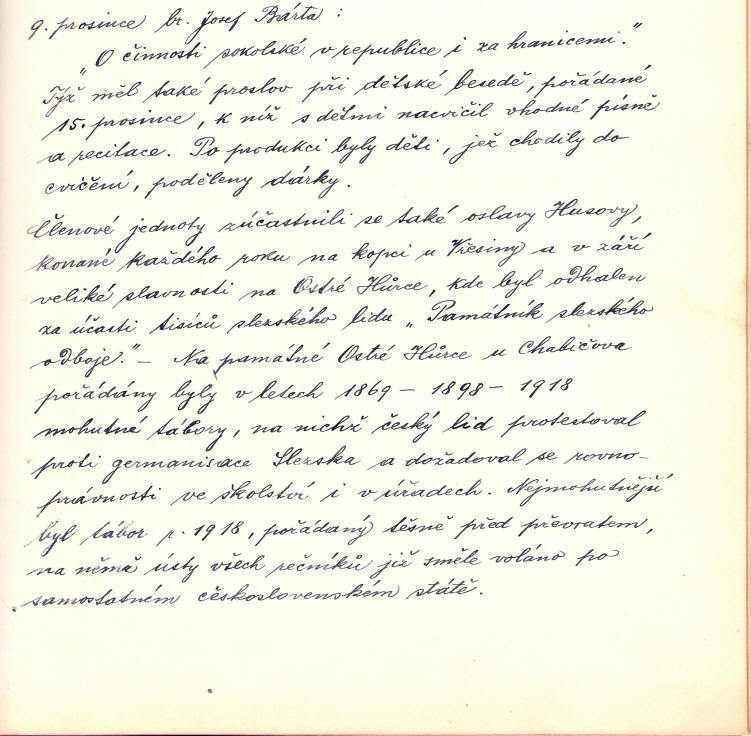 9. prosince br. Josef Bárta :
„O činnosti sokolské v republice i za hranicemi."
Týž měl také proslov při dětské besedě, pořádané
15. prosince, k níž s dětmi nacvičil vhodné písně
a recitace. Po produkci byly děti, jež chodily do
cvičení, poděleny dárky.
Členové jednoty zúčastnili se také oslavy Husovy,
konané každého roku na kopci u Vřesiny a v září
veliké slavnosti na Ostré Hůrce, kde byl odhalen
za účasti tisíců slezského lidu „Památník slezského
odboje." – Na památné Ostré Hůrce u Chabičova
pořádány byly v letech 1869 – 1898 – 1918
mohutné tábory, na nichž český lid protestoval
proti germanisace Slezska a dožadoval se rovno-
právnosti ve školství i v úřadech. Nejmohutnější
byl tábor r. 1918, pořádaný těsně před převratem,
na němž ústy všech řečníků již směle voláno po
samostatném československém státě.